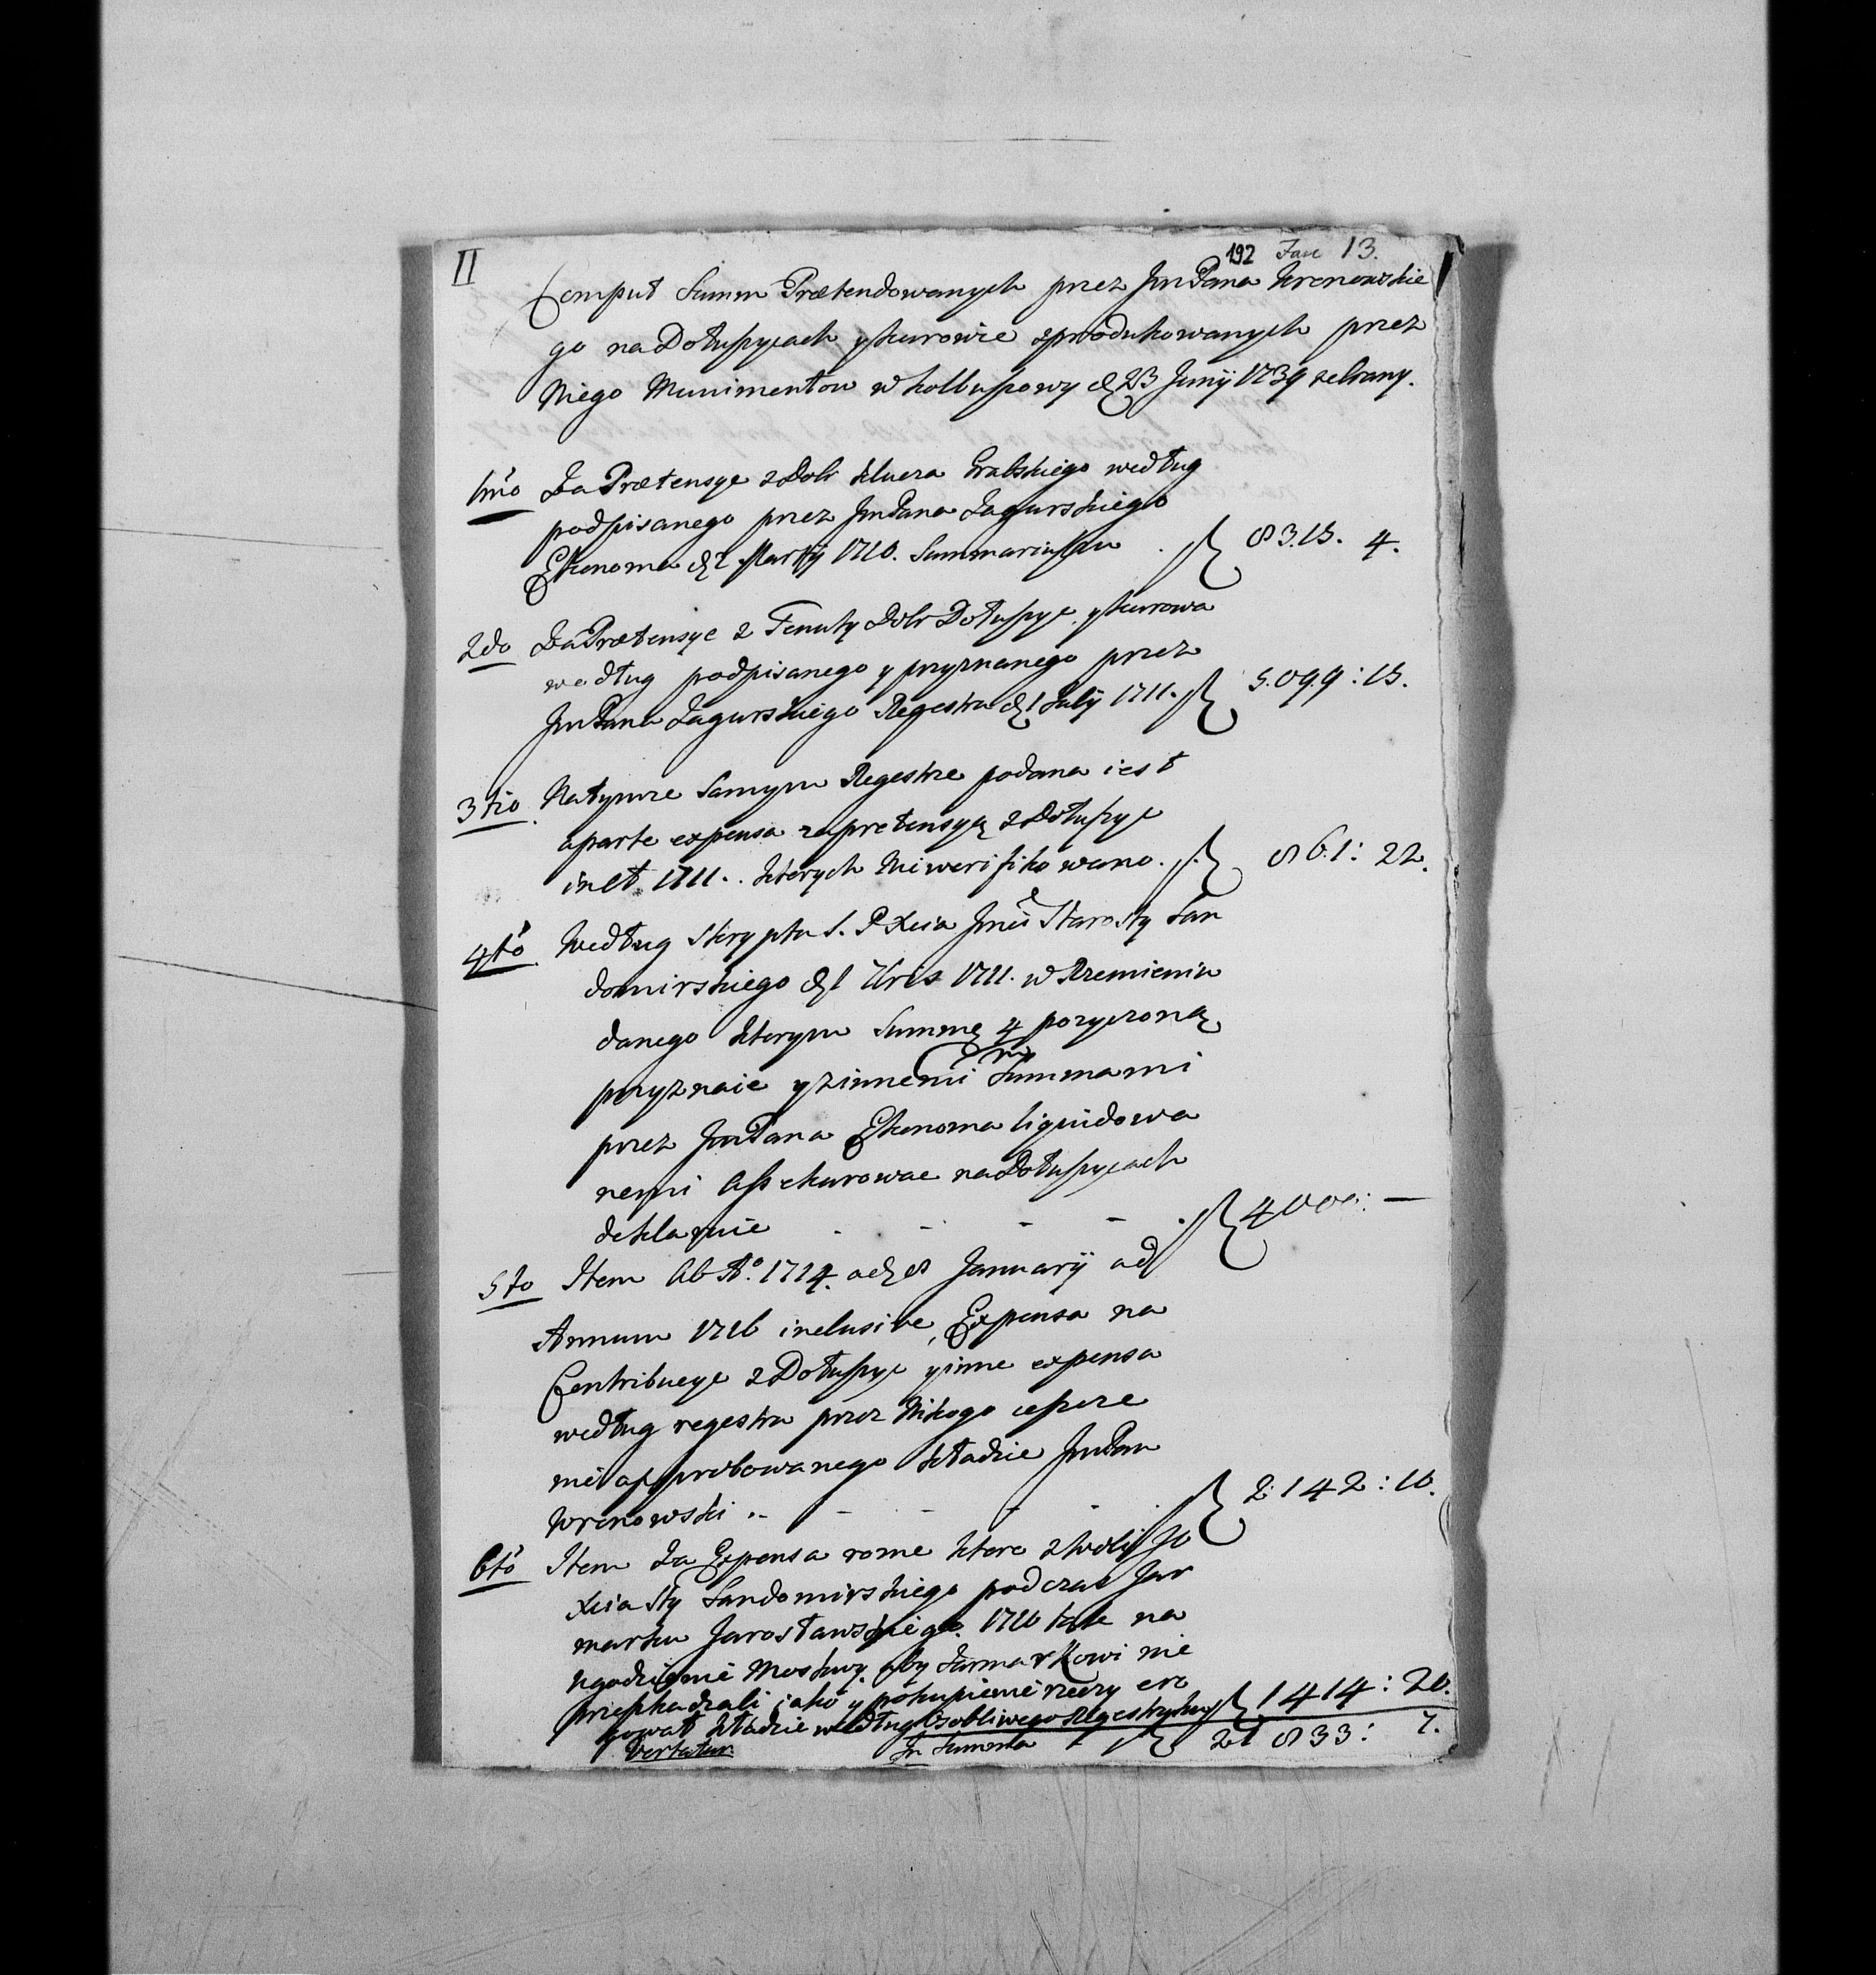 II
192 Fasc 13.
Comput Summ Prætendowanych przez JmPana Wronowskie
go na Dołuszycach y Kurowie zprodukowanych przez
Niego Munimentow w Kolbuszowy d 23 Junÿ 1739 zebrany.
1mo Za Prætensye z Dobr Klucza Gralskiego według
podpisanego przez JmPana Zagurskiego
Ekonoma d 2 Martÿ 1710. Summariuszu . 83.15. 4.
2do Za Prætensye z Tenuty Dobr Dołuszyc y Kurowa
według podpisanego y przyznanego przez
JmPana Zagurskiego Regestra d 1 Julÿ 1711. 5.099 : 15.
3tio Natymze Samym Regestrze podana iest
aparte expensa zapretensyą z Dołuszyc
in et 1711. . Ktorych Niwerifikowano . 861 : 22.
4to Według Skryptu S. P Xcia Jmći Starosty San
domirskiego d 1 Xbris 1711. w Rzemieniu
danego Ktorym Summę 4 pozyczoną
przyznaie y zinnemi Summami
przez JmPana Ekonoma liquidowa
nemi Assekurowac na Dołuszycach
deklaruie - - - . 4000: —
5to Item Ab Aº. 1714. a d 8 Januarÿ ad
Annum 1716 inclusive, Expensa na
Contribucye z Dołuszyc y inne expensa
według regestru przez Nikogo ieszcze
nie approbowanego Kładzie JmPan
Wronowski .. - - - . 2142 : 10.
6to Item Za Expensa rozne Ktore z Woli Jo
Xcia Sty Sandomirskiego podczas Jar
marku Jarosławskiego. 1716 tak na
ugodzienie Moskwy aby Jarmarkowi nie
przeszkadzali iako y pokupienie rzeczy ero
gował Kładzie według Osobliwego Regestrzyku 1414 : 20.
Vertatur In Summa 21 833 : 7.